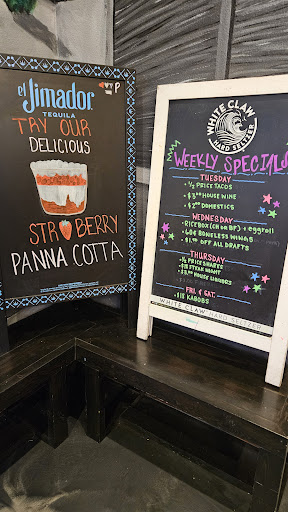 el Jimador
TEQUILA
TRY OUR
DELICIOUS
STR BERRY
PANNA COTTA
WHITE CLAW
HARD SELTZER
WEEKLY SPECIALS
TUESDAY
• ½ PRICE TACOS
• $3 HOUSE WINE
• $2 DOMESTICS
WEDNESDAY
• RICE BOX (CH OR BF) + eggroll
• 60¢ BONELESS WINGS
• $1.00 OFF ALL DRAFTS
THURSDAY
• ½ PRICE SHARES
STEAK NIGHT
HOUSE LIQUORS
FRI & SAT.
• $18 KABOBS
WHITE CLAW HARD SELTZER